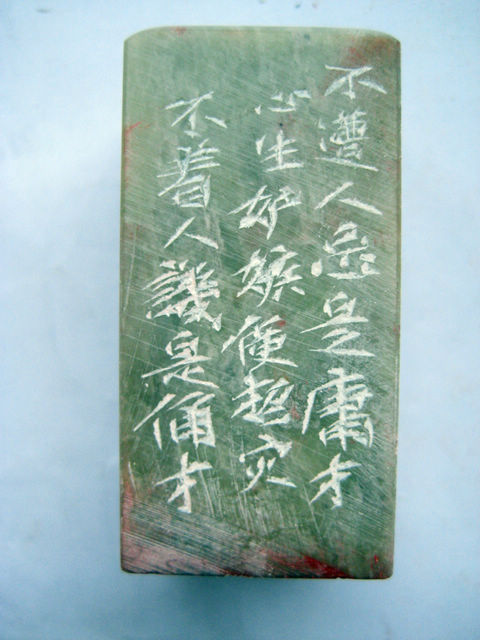 不遭人忌是庸才
心生妒嫉便超灾
不着人譏是傭才